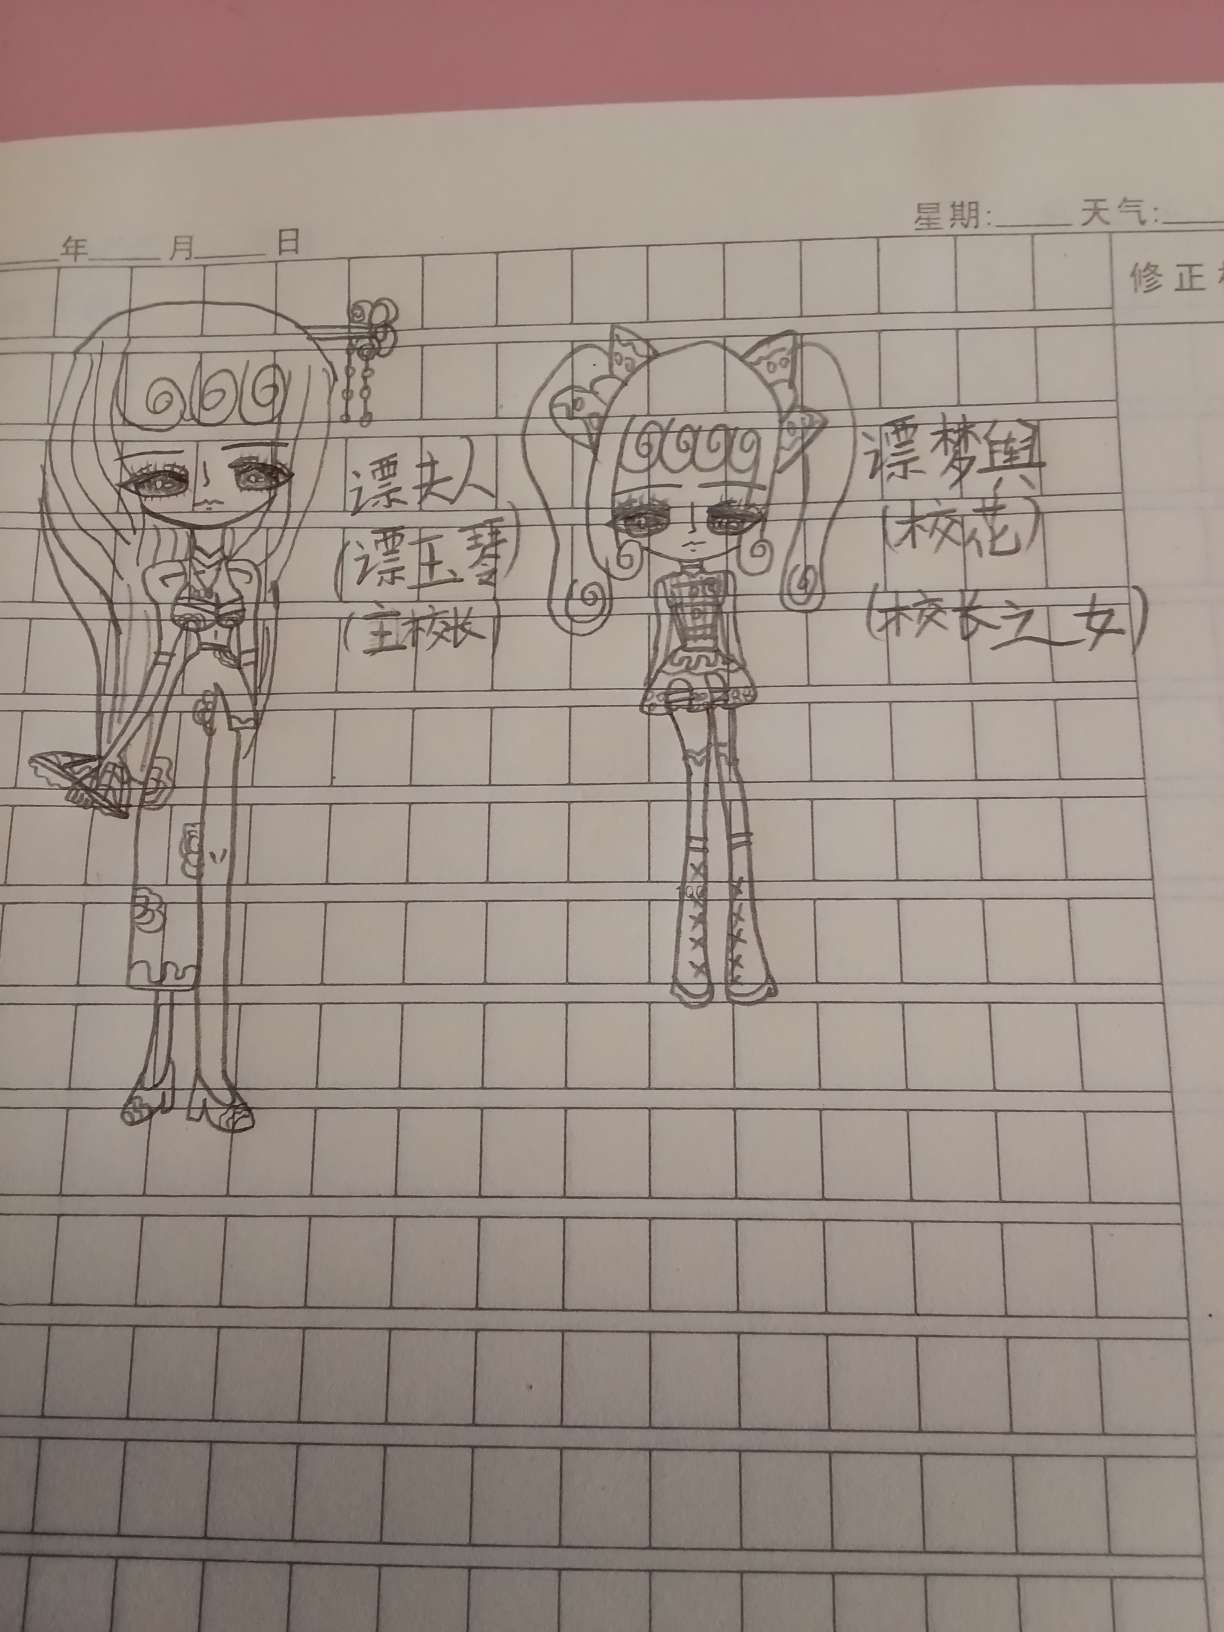 星期:____天气:____
____年____月____日
修正
谭夫人
(谭玉琴)
(主校长)
谭梦舆
(校花)
(校长之女)